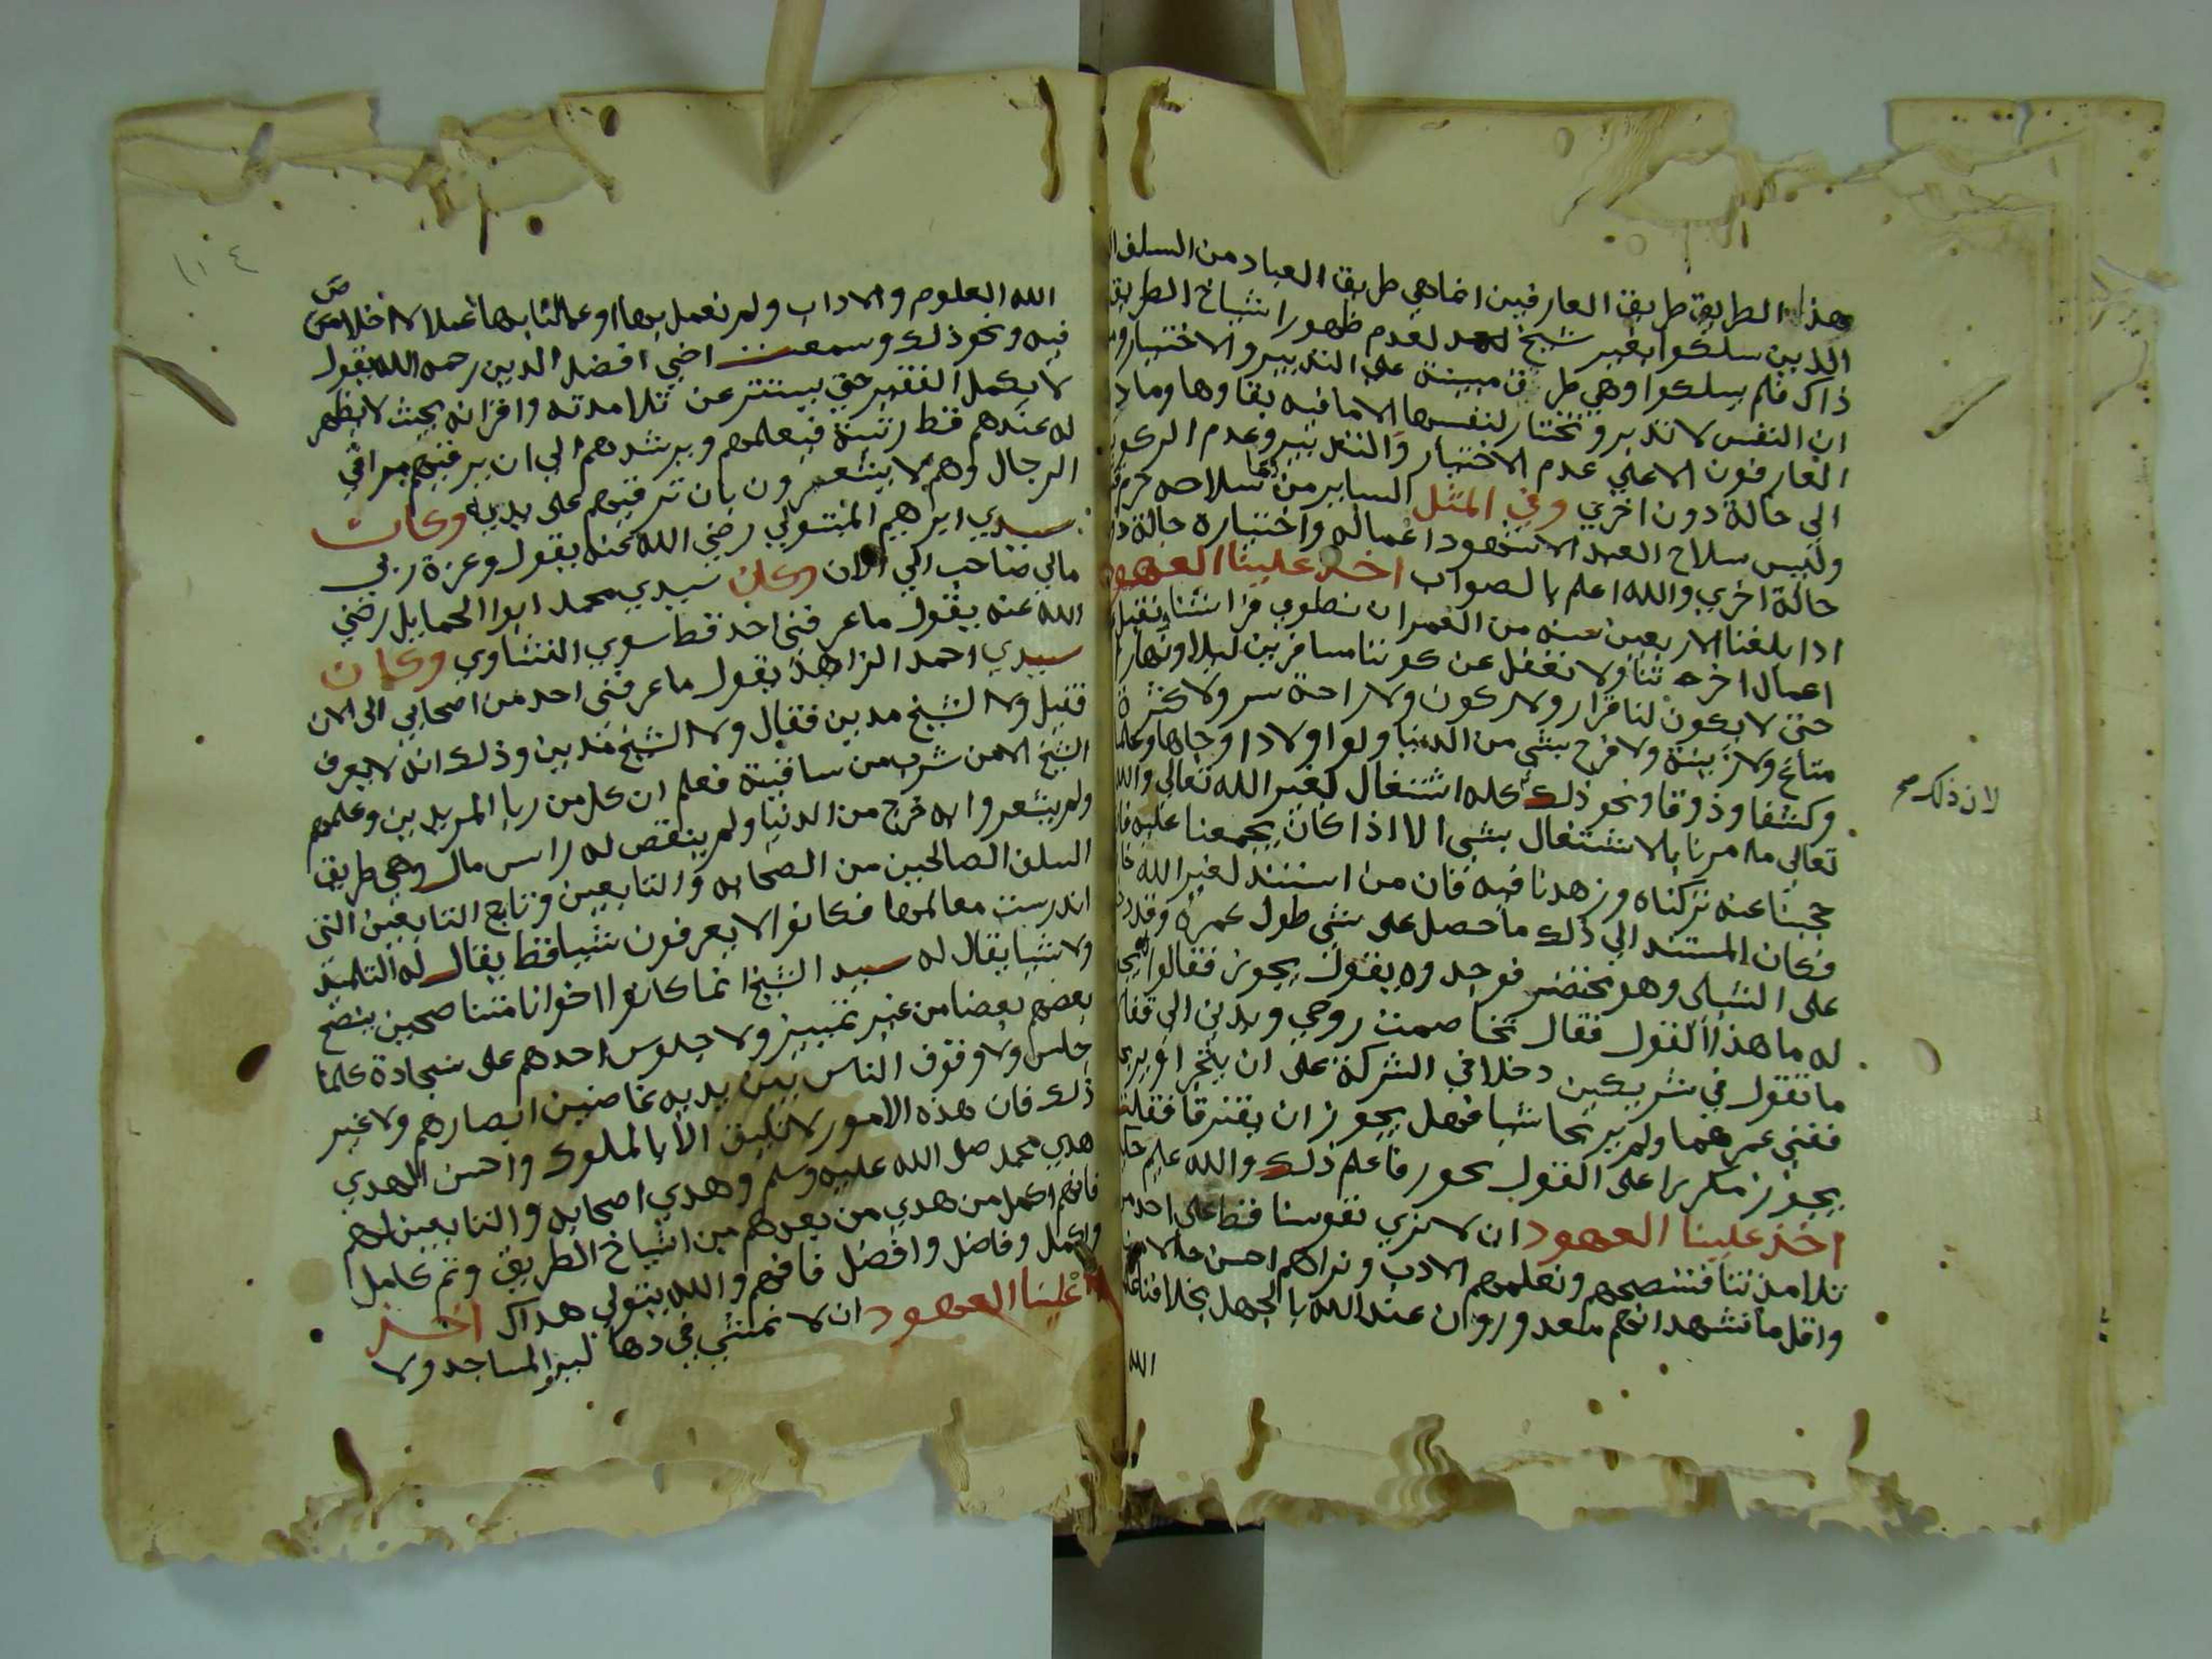 هذا الطريق طريق العارفين انما هي طريق العباد من السلف
الذين سلكوا بغير شيخ لعدم ظهور اشياخ الطريق
ذاك فلم يسلكوا وهي طريق مبينة على التدبير والاختيار
ان النفس لا تدبر وتختار لنفسها الا ما فيه بقاوها وما
العارفون الا على عدم الاختيار والتدبير وعدم الركون
الى حالة دون اخرى وفي المثل الساير من القا سلاحه حرم
وليس سلاح العبد الا شهود اعماله واختياره حالة
حالة اخرى والله اعلم بالصواب اخذ علينا العهود
اذا بلغنا الاربعين سنه من العمر ان نطوي فراشنا
اعمال اخرتنا ولا نغفل عن كوننا مسافرين ليلا ونهارا
حتى لا يكون لنا قرار ولا ركون ولا راحة سر ولا كثرة
متاع ولا زينة ولا فرح بشي من الدنيا ولو اولادا وجاها وعلما
وكشفا وذوقا ونحو ذلك كله اشتغال لغير الله تعالى والله
لان ذلك صح
تعالى ما امرنا بالاشتغال بشي الا اذا كان يجمعنا عليه
حجبنا عنه تركناه وزهدنا فيه فان من استند لغير الله
فكان المستند الى ذلك ما حصل على شي طول عمره وقد
على الشبلى وهو يحتضر فوجدوه يقول يجوز فقالوا
له ما هذا القول فقال تخاصمت روحي وبدني الى
ما تقول في شريكين دخلا في الشركة على ان يتجرا
ففني عمرهما ولم يربحا شيا فهل يجوز ان يفترقا فقلت
يجوز مكررا على القول يجوز فاعلم ذلك والله عليم
اخذ علينا العهود ان لا نرى نفوسنا قط على احد من
تلامذتنا فننصحهم ونعلمهم الادب ونراهم احسن حالا
واقل ما نشهد انهم معذورون عند الله بالجهل بخلافنا
الله
١٠٤
الله العلوم والاداب ولم نعمل بها او عملنا بها عملا لا اخلاص
فيه ونحو ذلك وسمعت اخي افضل الدين رحمه الله يقول
لا يكمل الفقير حتى يستتر عن تلامذته واقرانه بحيث لا يظهر
له عندهم قط رتبة فيعلمهم ويرشدهم الى ان يرقيهم مراقي
الرجال وهم لا يشعرون بان ترقيهم على يديه وكان
سيدي ابراهيم المتبولي رضي الله عنه يقول وعزة ربي
مالي صاحب الى الان وكان سيدي محمد ابوا الحمايل رضي
الله عنه يقول ما عرفني احد قط سوى الشناوي وكان
سيدي احمد الزاهد يقول ما عرفني احد من اصحابي الى الان
فقيل ولا الشيخ مدين فقال ولا الشيخ مدين وذلك انه لا يعرف
الشيخ الا من شرب من ساقيته فعلم ان كل من ربا المريدين وعلمهم
ولم يشعروا به خرج من الدنيا ولم ينقص له راس مال وهي طريق
السلف الصالحين من الصحابه والتابعين وتابع التابعين التي
اندرست معالمها فكانوا لا يعرفون شيا قط يقال له التلميذ
ولا شيا يقال له سيد الشيخ انما كانوا اخوانا متناصحين ينصح
بعضهم بعضا من غير تمييز ولا جلوس احدهم على سجادة كلما
جلس ولا وقوف الناس بين يديه غاضين ابصارهم ولا غير
ذلك فان هذه الامور لا تليق الا بالملوك واحسن الهدي
هدي محمد صلى الله عليه وسلم وهدي اصحابه والتابعين لهم
فانهم اكمل من هدي من بعدهم من اشياخ الطريق وثم كامل
واكمل وفاضل وافضل فافهم والله يتولى هداك اخذ
علينا العهود ان لا نمشي في دهاليز المساجد ولا